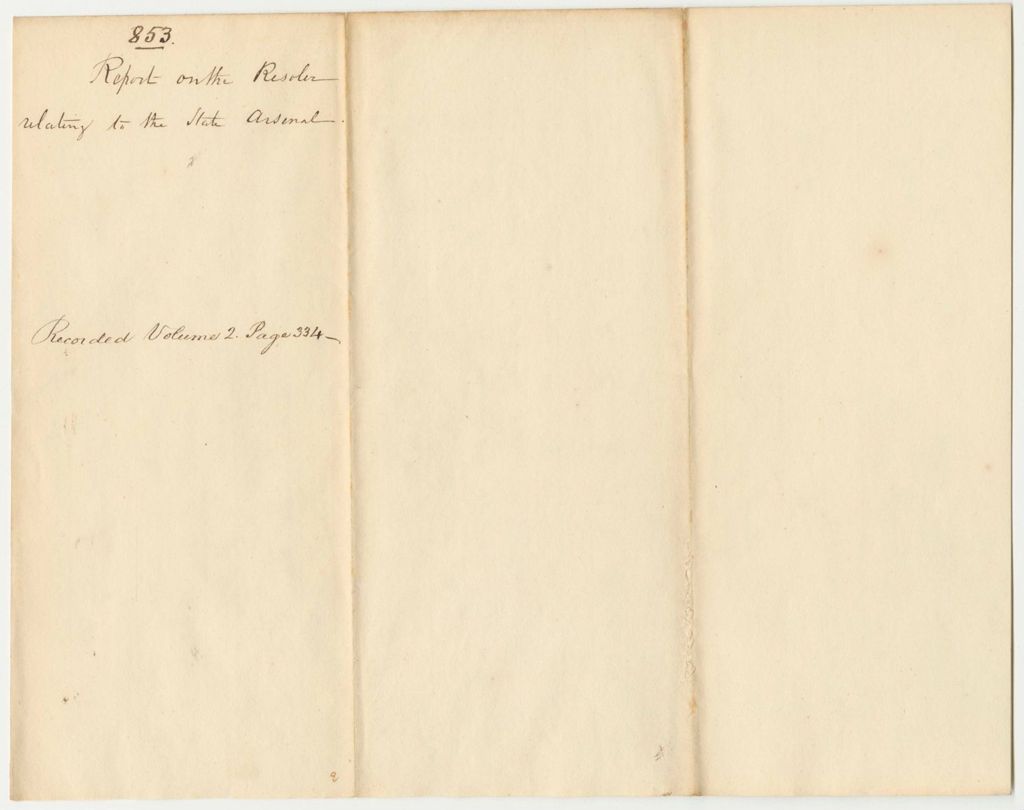 853.
Report on the Resolve
relating to the State Arsenal.
Recorded Volume 2. Page 334